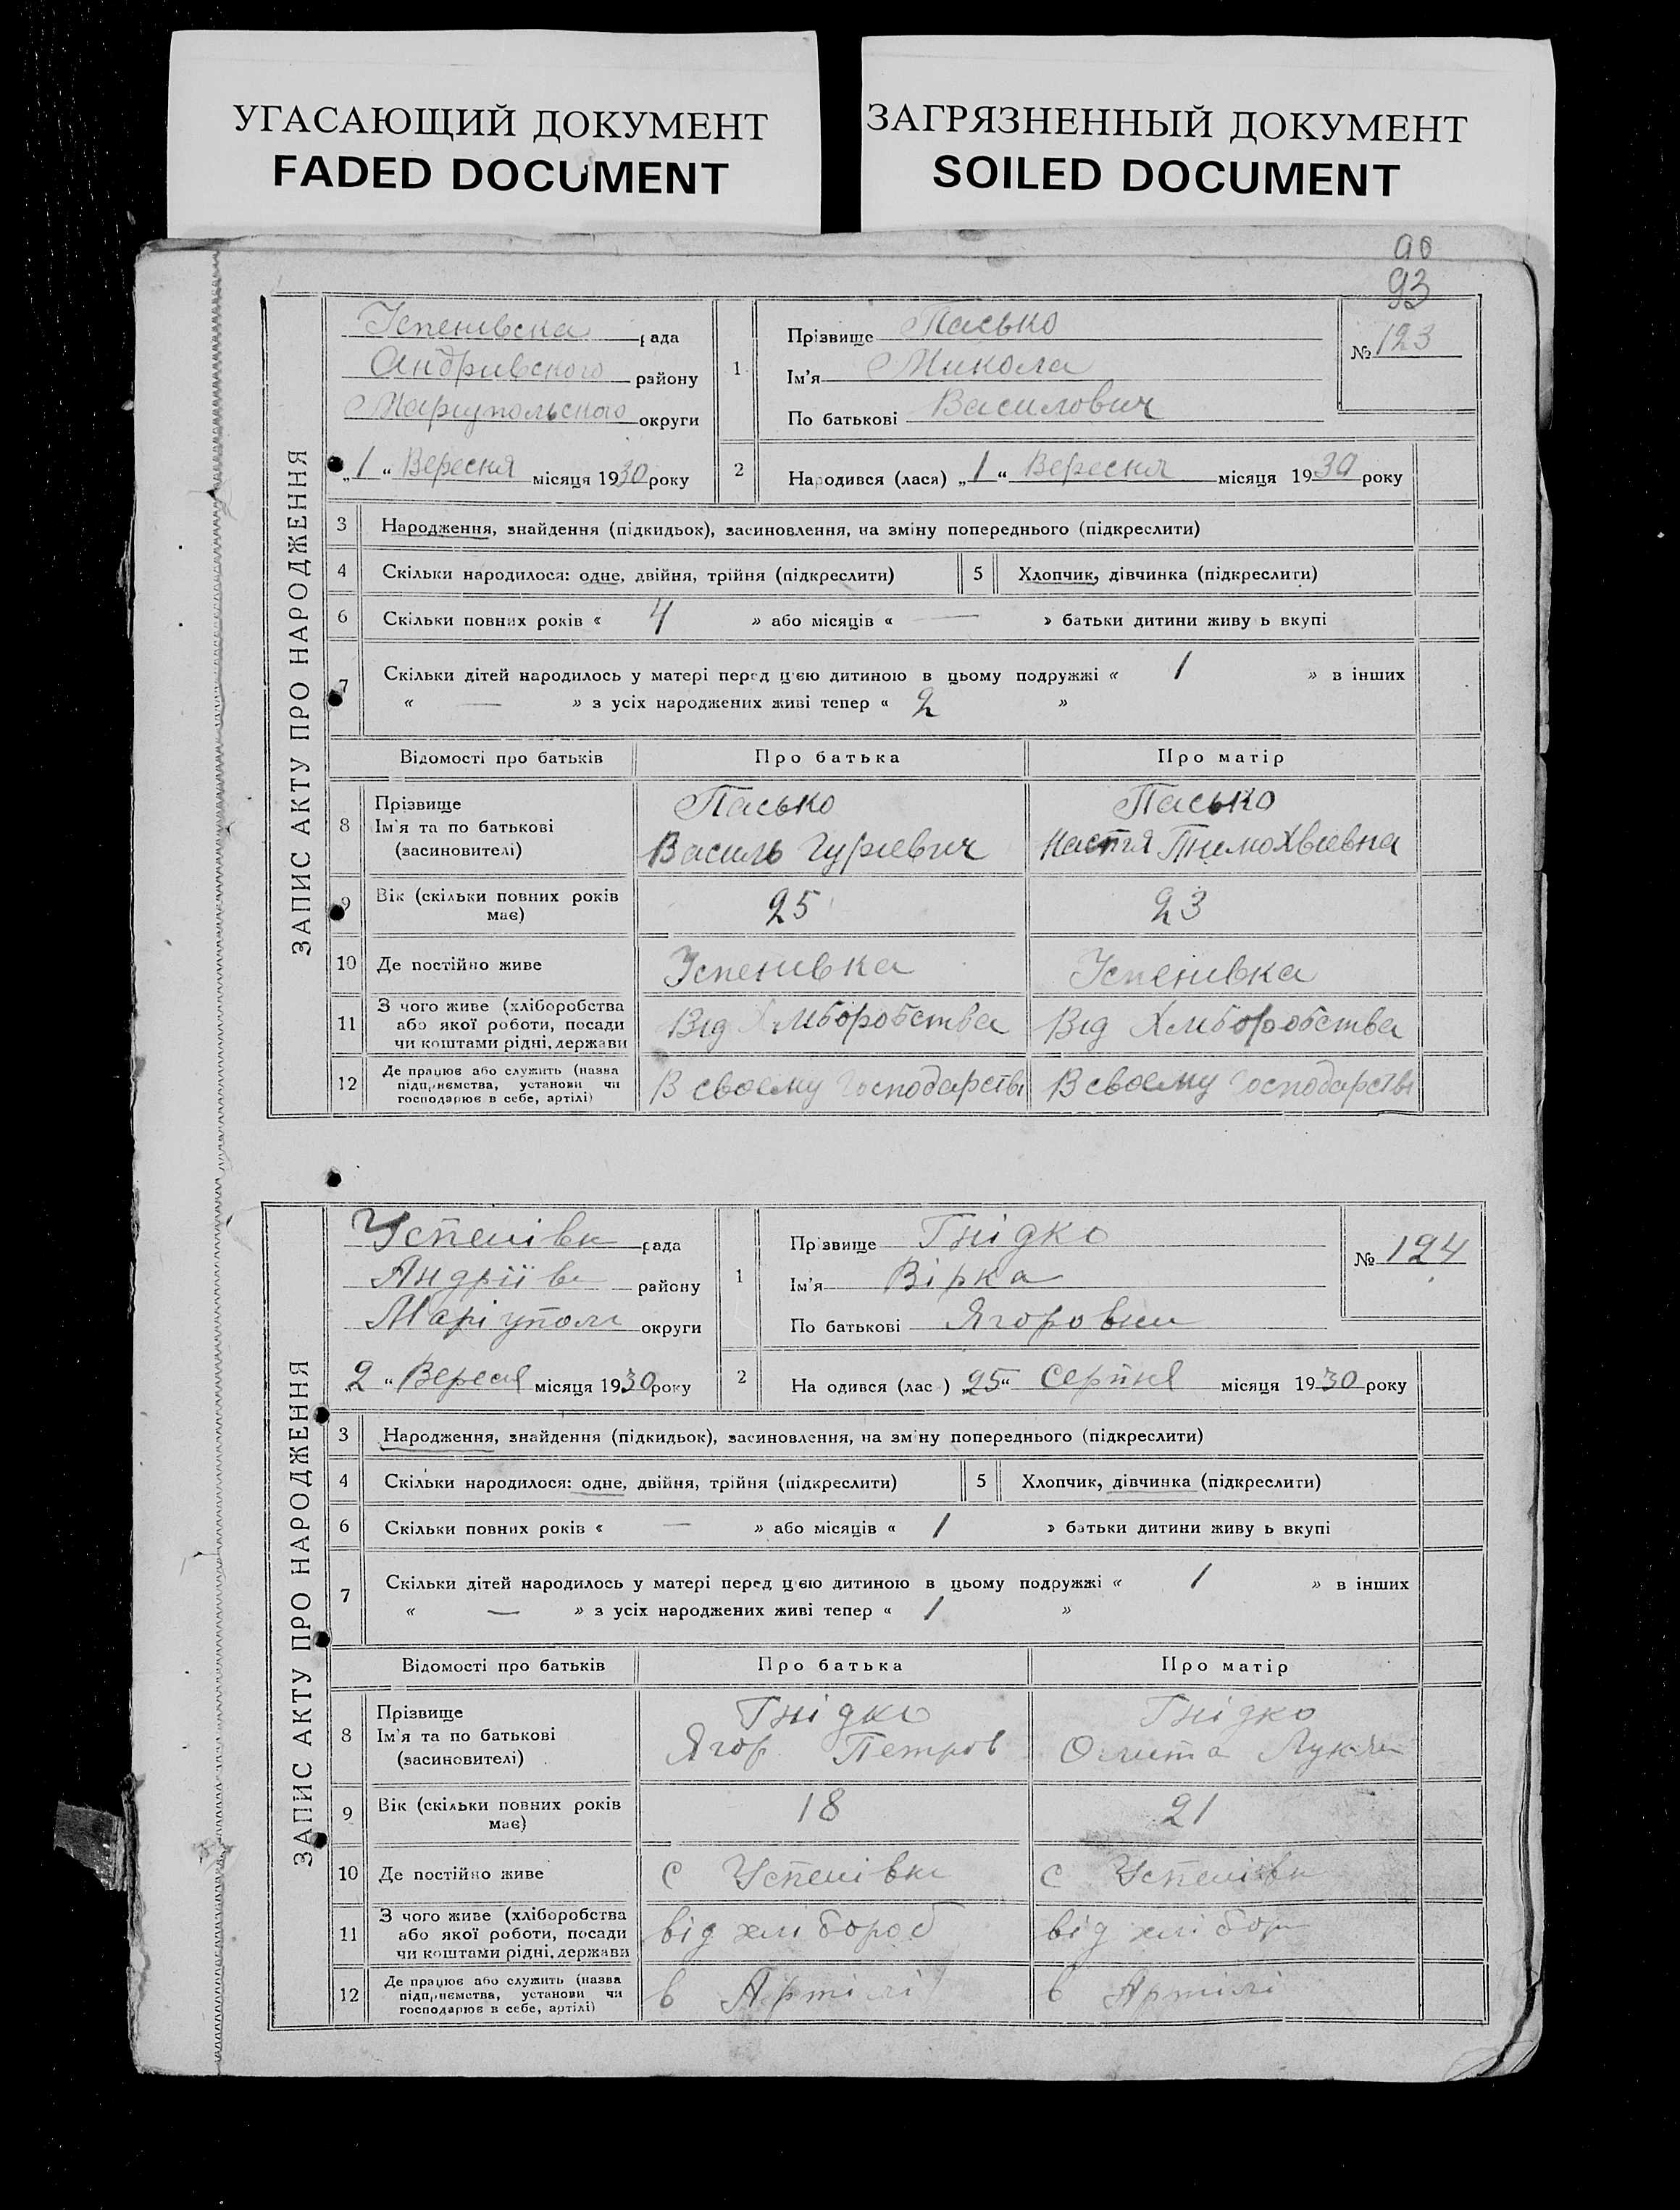 УГАСАЮЩИЙ ДОКУМЕНТ
FADED DOCUMENT
ЗАГРЯЗНЕННЫЙ ДОКУМЕНТ
SOILED DOCUMENT
93
ЗАПИС АКТУ ПРО НАРОДЖЕННЯ
Успенівска рада
Андрівского району
Маріупольского округи
„1“ Вересня місяця 1930 року
1
Прізвище Пасько
Ім'я Микола
По батькові Василович
№ 123
2
Народився (лася) „1“ Вересня місяця 1930 року
3 Народження, знайдення (підкидьок), засиновлення, на зміну попереднього (підкреслити)
4 Скільки народилося: одне, двійня, трійня (підкреслити) 5 Хлопчик, дівчинка (підкреслити)
6 Скільки повних років « 4 » або місяців « — » батьки дитини живу ь вкупі
7 Скільки дітей народилось у матері перед цією дитиною в цьому подружжі « 1 » в інших
« — » з усіх народжених живі тепер « 2 »
Відомості про батьків Про батька Про матір
8 Прізвище
Ім'я та по батькові
(засиновителі)
Пасько
Василь Гурієвич
Пасько
Настя Тимохвіевна
9 Вік (скільки повних років має) 25 23
10 Де постійно живе Успенивка Успенивка
11 З чого живе (хліборобства
або якої роботи, посади
чи коштами рідні, держави
Від Хліборобства Від Хліборобства
12 Де працює або служить (назва
підприємства, установи чи
господарює в себе, артілі)
В своему господарстві В своему господарстві
ЗАПИС АКТУ ПРО НАРОДЖЕННЯ
Успенівк рада
Андріїв району
Маріупол округи
2 “ Вересня місяця 1930 року
1
Пр звище Гнідко
Ім'я Вірка
По батькові Ягоровни
№ 124
2
На одився (лас ) „25“ Серпня місяця 1930 року
3 Народження, знайдення (підкидьок), засиновлення, на зм ну попереднього (підкреслити)
4 Скільки народилося: одне, двійня, трійня (підкреслити) 5 Хлопчик, дівчинка (підкреслити)
6 Скільки повних років « — » або місяців « 1 » батьки дитини живу ь вкупі
7 Скільки дітей народилось у матері перед цією дитиною в цьому подружжі « 1 » в інших
« — » з усіх народжених живі тепер « 1 »
Відомості про батьків Про батька Про матір
8 Прізвище
Ім'я та по батькові
(засиновителі)
Гнідко
Ягор Петров
Гнідко
9 Вік (скільки повних років має) 18 21
10 Де постійно живе с Успенівки с Успенівк
11 З чого живе (хліборобства
або якої роботи, посади
чи коштами рідні, держави
від хлібороб від хлібор
12 Де працює або служить (назва
підприємства, установи чи
господарює в себе, артілі)
в Артілі в Артілі